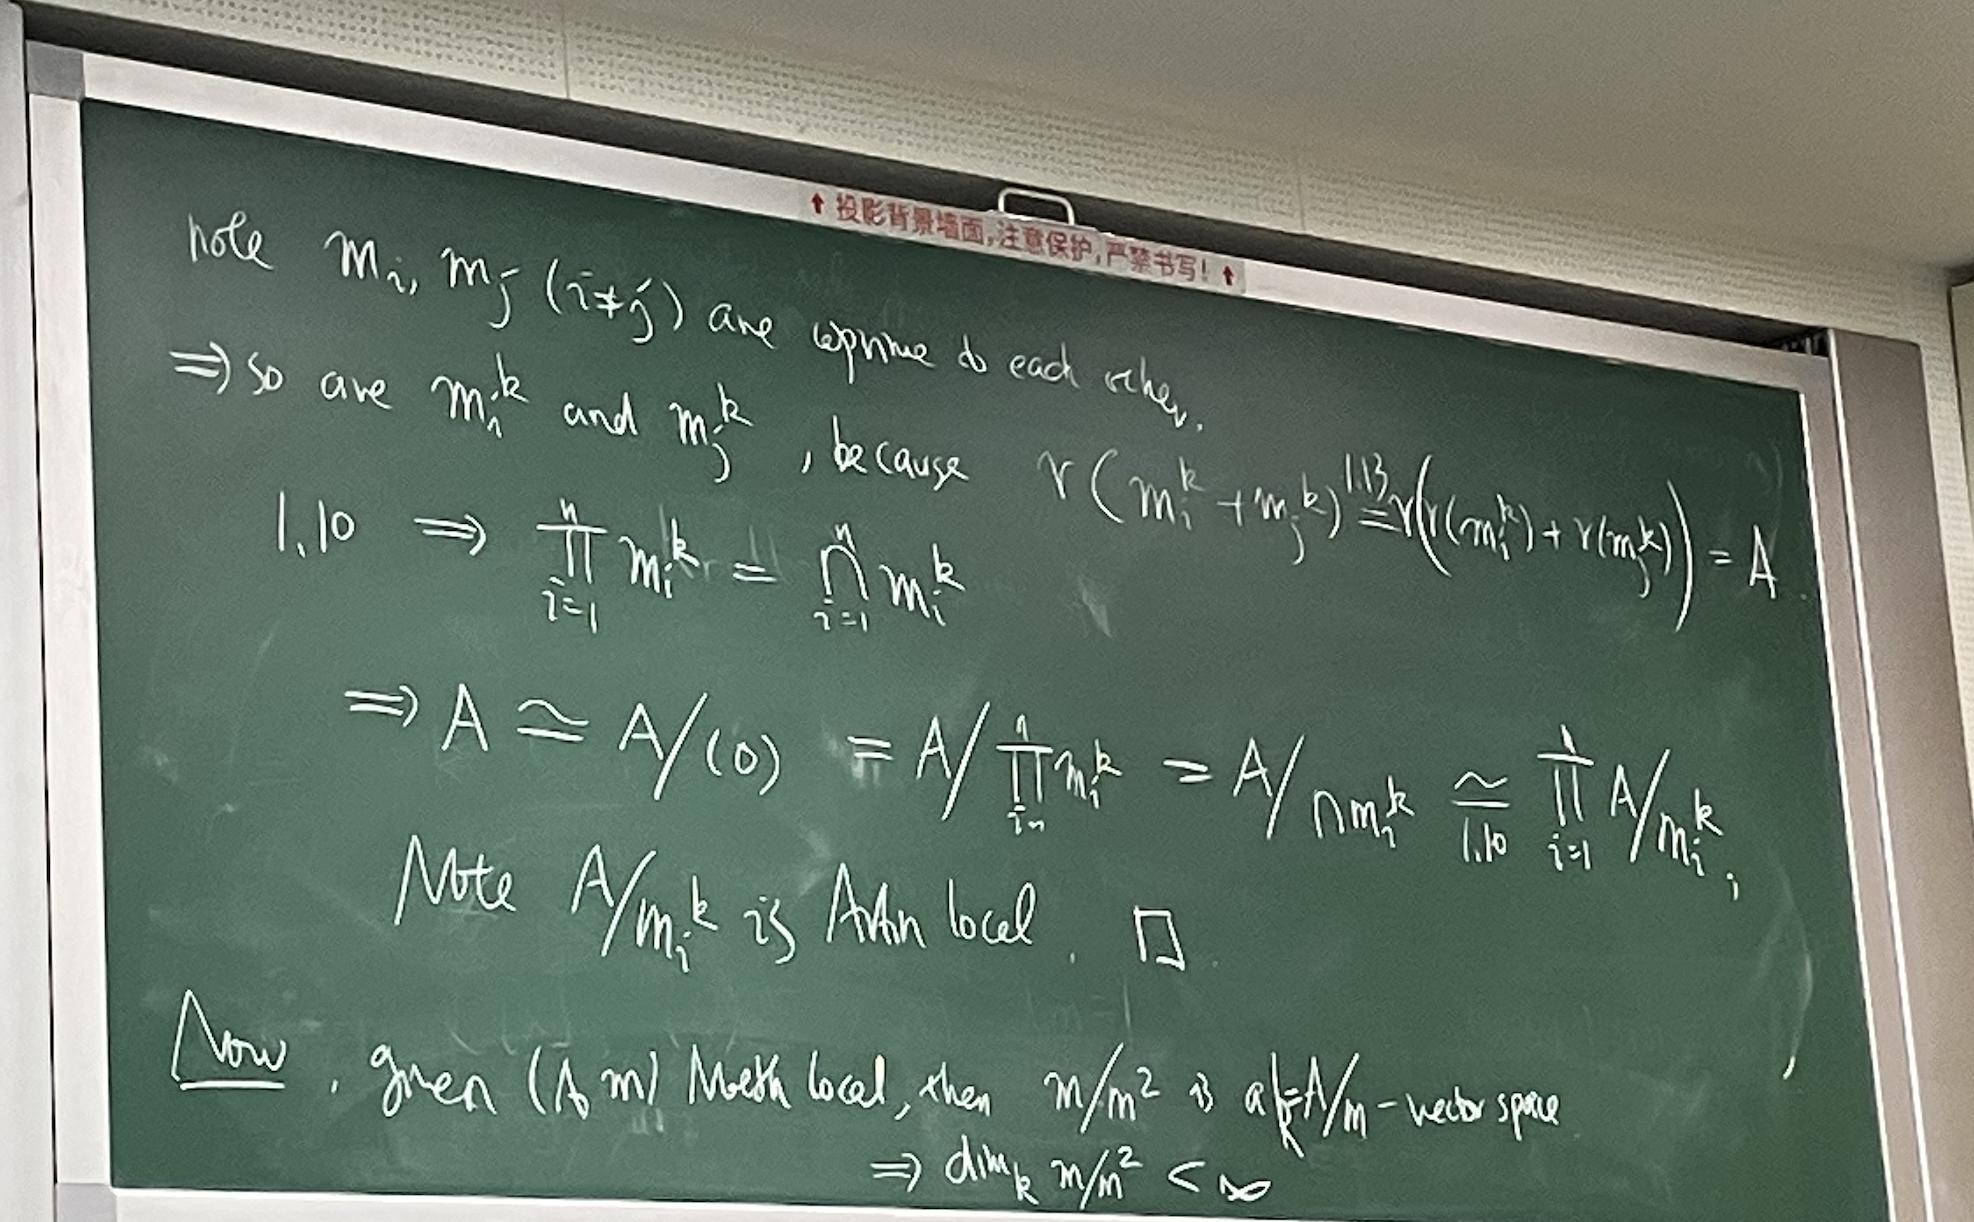 ↑投影背景墙面,注意保护,严禁书写!↑
note m_i, m_j (i≠j) are coprime to each other.
⇒ so are m_i^k and m_j^k, because r(m_i^k + m_j^k) =^{1.13} r(r(m_i^k) + r(m_j^k)) = A.
1.10 ⇒ ∏_{i=1}^n m_i^k = ∩_{i=1}^n m_i^k
⇒ A ≃ A/(0) = A/∏_{i=1}^n m_i^k = A/∩m_i^k ≃_{1.10} ∏_{i=1}^n A/m_i^k,
Note A/m_i^k is Artin local. □.
Now, given (A, m) Noeth local, then m/m² is a k=A/m-vector space
⇒ dim_k m/m² < ∞